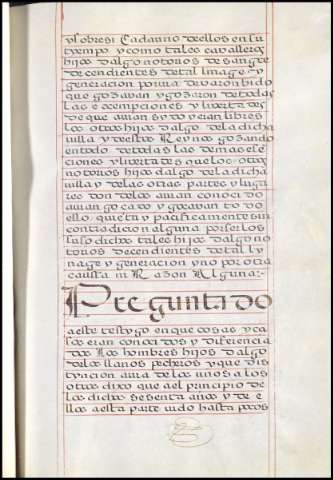 y sobresi Cadauno dellos en su
tyempo y como tales cavalleros
hijos dalgo notorios de sangre
decendientes de tal linage y
generacion por via de varon ubido
que gozavan y gozaron de todas
las exempciones y livertades
de que avian sydo y eran libres
los otros hijos dalgo de la dicha
villa y de este Reyno gozando
en todo de todas las demas ese
ciones y livertades que los otros
notorios hijos dalgo de la dicha
villa y de las otras partes y luga
res don de los avian conocido
avian gocado y gocavan todo
ello quieta y pacificamente sin
contradicion alguna por ser los
suso dichos tales hijos dalgo no
torios decendientes de tal ly
nage y generacion y no por otra
causa ni Razon Alguna:-
Preguntado
a este testygo en que cosas y ca
sos eran conocidos y diferencia
dos los hombres hijos dalgo
de los llanos pecheros y que dis
tyncion avia de los unos a los
otros dixo que a el principio de
los dichos sesenta años y de e
llos a esta parte vido hasta pocos